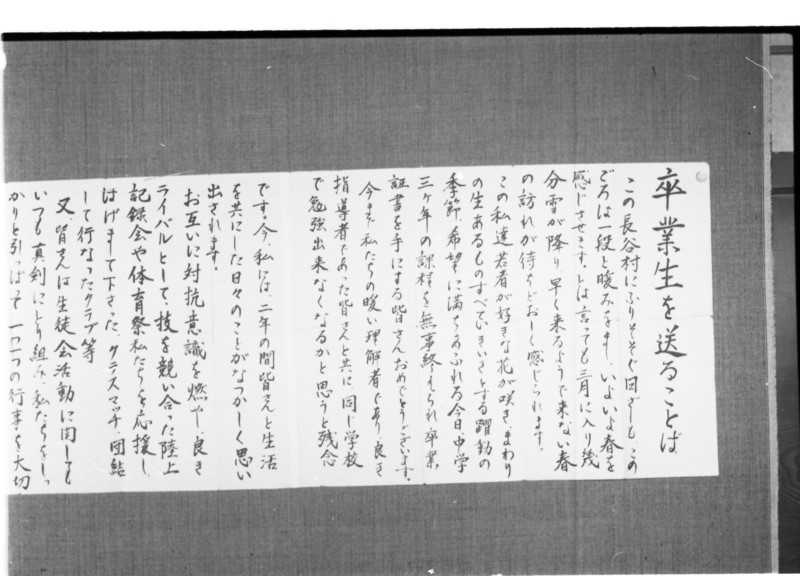 卒業生を送ることば
この長谷村にふりそそぐ日ざしも、この
ごろは一段と暖みをまし、いよいよ春を
感じさせます。とは言っても三月に入り幾
分雪が降り早く来るようで来ない春
の訪れが待ちどおしく感じられます。
この私達若者が好きな花が咲き、まわり
の生あるものすべていきいきとする躍動の
季節、希望に満ちあふれる今日中学
三ヶ年の課程を無事終えられ卒業
証書を手にする皆さんおめでとうございます。
今まで私たちの暖い理解者であり良き
指導者であった皆さんと共に、同じ学校
で勉強出来なくなるかと思うと残念
です。今、私には、二年の間皆さんと生活
を共にした日々のことがなつかしく思い
出されます。
お互いに対抗意識を燃やし良き
ライバルとして、技を競い合った陸上
記録会や体育祭私たちを応援し
はげまして下さった、クラスマッチ、団結
して行なったクラブ等
又、皆さんは生徒会活動に関しても
いつも真剣にとり組み、私たちをしっ
かりと引っぱって一つ一つの行事を大切